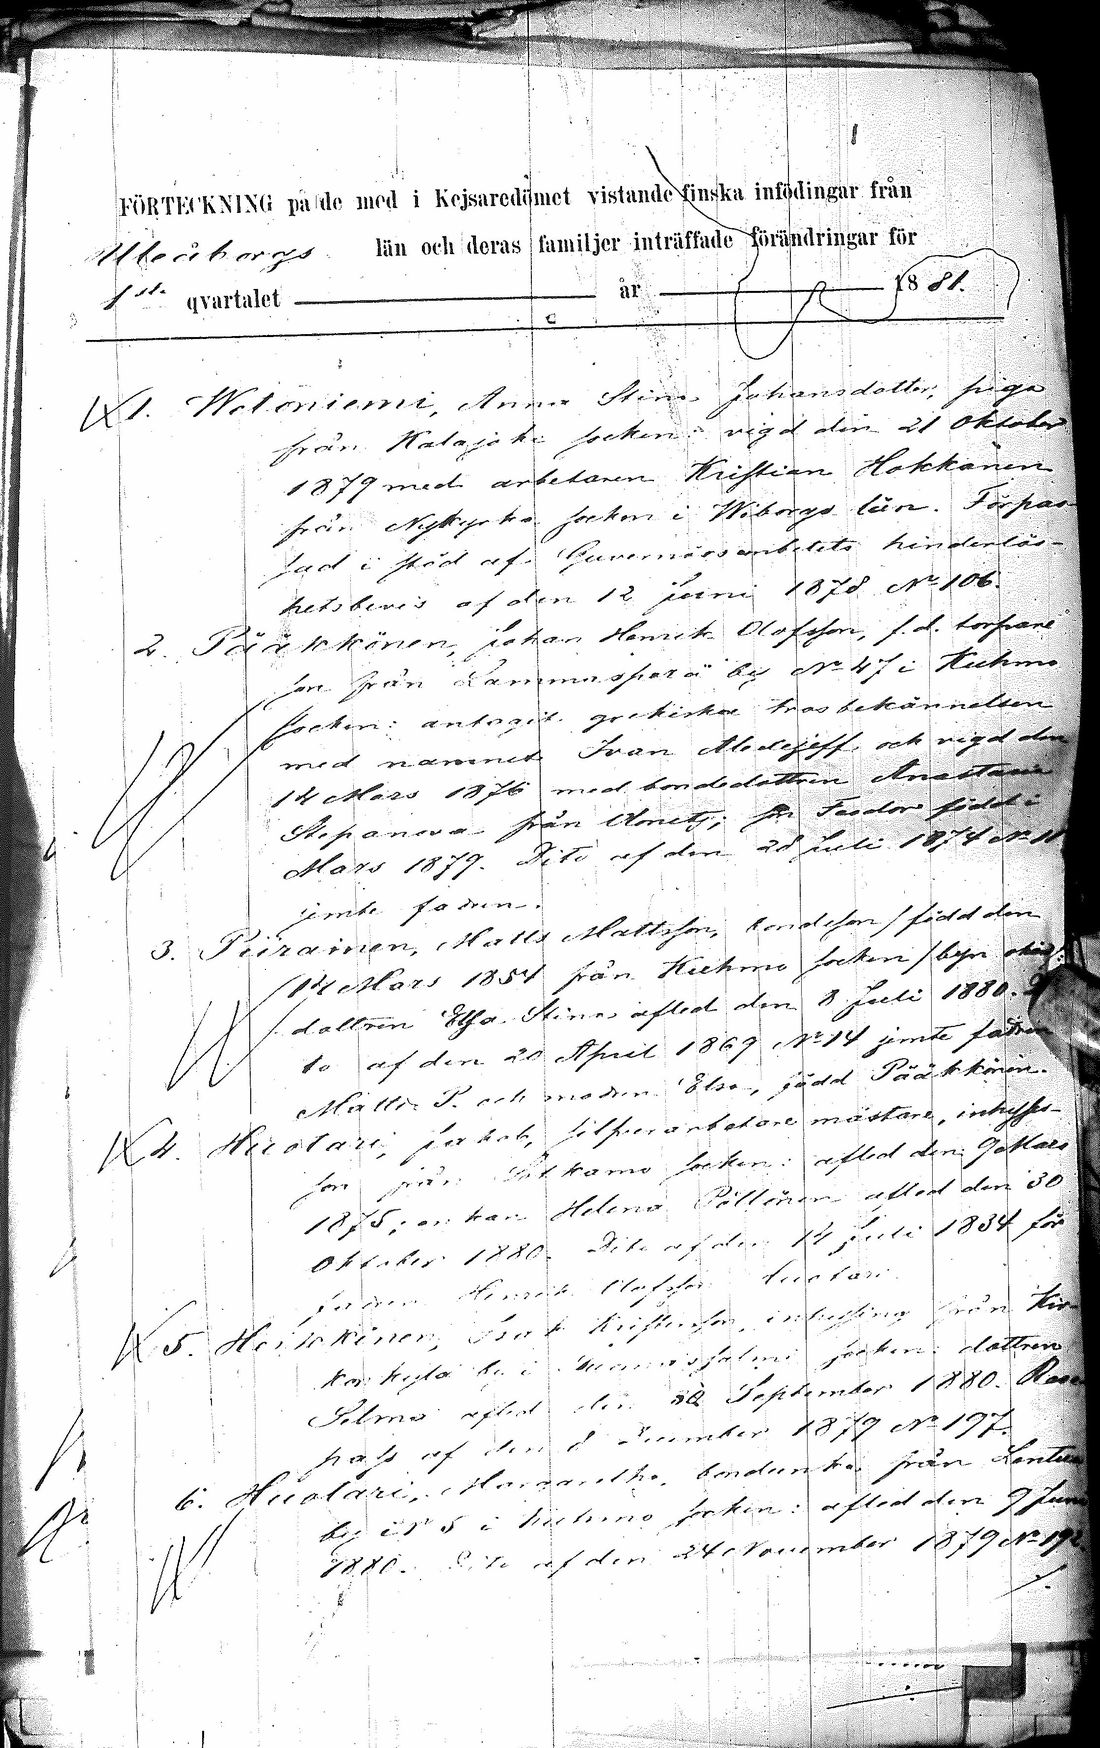 FÖRTECKNING på de med i Kejsaredömet vistande finska infödingar från
Uleåborgs län och deras familjer inträffade förändringar för
1sta qvartalet år 1881.
1. Weteniemi, Anna Stina Johansdotter, piga
från Kalajoki socken: vigd den 21 Oktober
1879 med arbetaren Kristian Hokkanen
från Nykyrka socken i Wiborgs län. Förpas-
sad i stöd af Guvernörsembetets hinderlös-
hetsbevis af den 12 Juni 1878 No 106.
2. Pääkkönen, Johan Henrik Olofsson, f.d. torpare
son från Lammasperä by No 47 i Kuhmo
socken: antagit grekiska trosbekännelsen
med namnet Ivan Alexejeff, och vigd den
14 Mars 1876 med bondedottren Anastasia
Stepanova från Olonetz; son Feodor född i
Mars 1879. Dito af den 28 Juli 1874 No 11
jemte fadren.
3. Piirainen, Matts Mattsson, bondeson / född den
14 Mars 1854 från Kuhmo socken / byn
dottren Elsa Stina afled den 8 Juli 1880. Di-
to af den 20 April 1869 No 14 jemte fadren
Matts P. och modren Elsa, född Pääkkönen.
4. Huotari, Jakob, silfverarbetare mästare, inhyses-
son från Sotkamo socken: afled den 9 Mars
1875; enkan Helena Pöllönen afled den 30
Oktober 1880. Dito af den 14 Juli 1834 för
fadren Henrik Olofsson Huotari.
5. Heikkinen, Isak Kristersson, inhysing från Kir-
konkylä by i Suomussalmi socken: dottren
Selma afled den September 1880. Rese-
pass af den 8 December 1879 No 197.
6. Huotari, Margaretha, bondeenka från Lentua
by No 5 i Kuhmo socken: afled den 9 Juni
1880. Dito af den 24 November 1879 No 192.